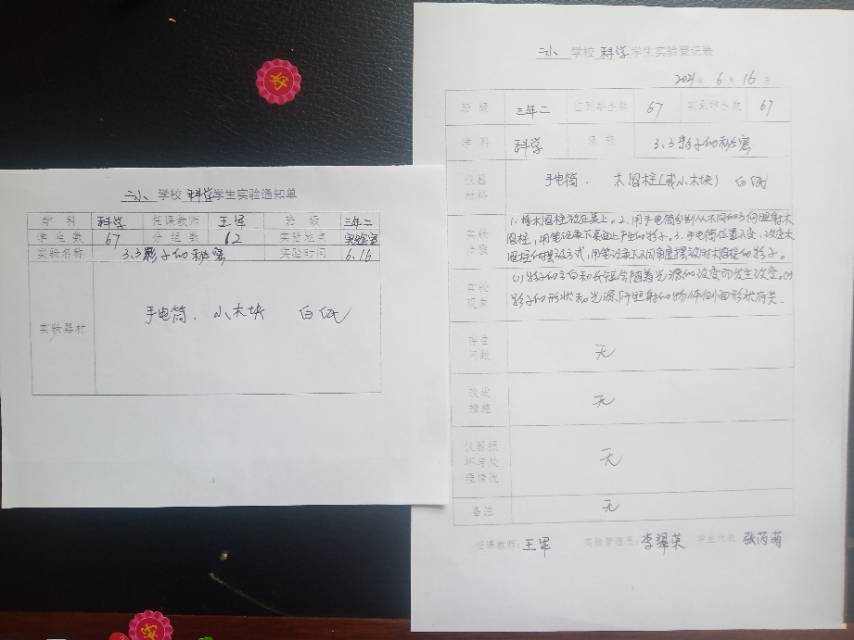 二小 学校 科学学生实验通知单
学科 科学 任课教师 王军 班级 三年二
学生数 67 分组数 62 实验地点 实验室
实验名称 3.3影子的秘密 实验时间 6.16
实验器材 手电筒、小木块 白纸
二小 学校 科学学生实验登记表
2021年 6月 16日
班级 三年二 67 67
学科 科学 课题 3.3影子的秘密
仪器
材料
手电筒、木圆柱(或小木块) 白纸
实验
1.将木圆柱放在桌上。2.用手电筒分别从不同的方向照射木
圆柱,用笔记录下桌面上产生的影子。3.手电筒位置不变,改变木
圆柱的摆放方式,用笔记录下不同角度摆放时木圆柱的影子。
实验
现象
(1)影子的方向和长短会随着光源的改变而发生改变。(2)
影子的形状和光源所照射的物体侧面形状有关。
存在
问题
无
改进
措施
无
仪器损
坏与处
理情况
无
备注 无
任课教师:王军 实验管理员:李翠英 学生代表
安
安